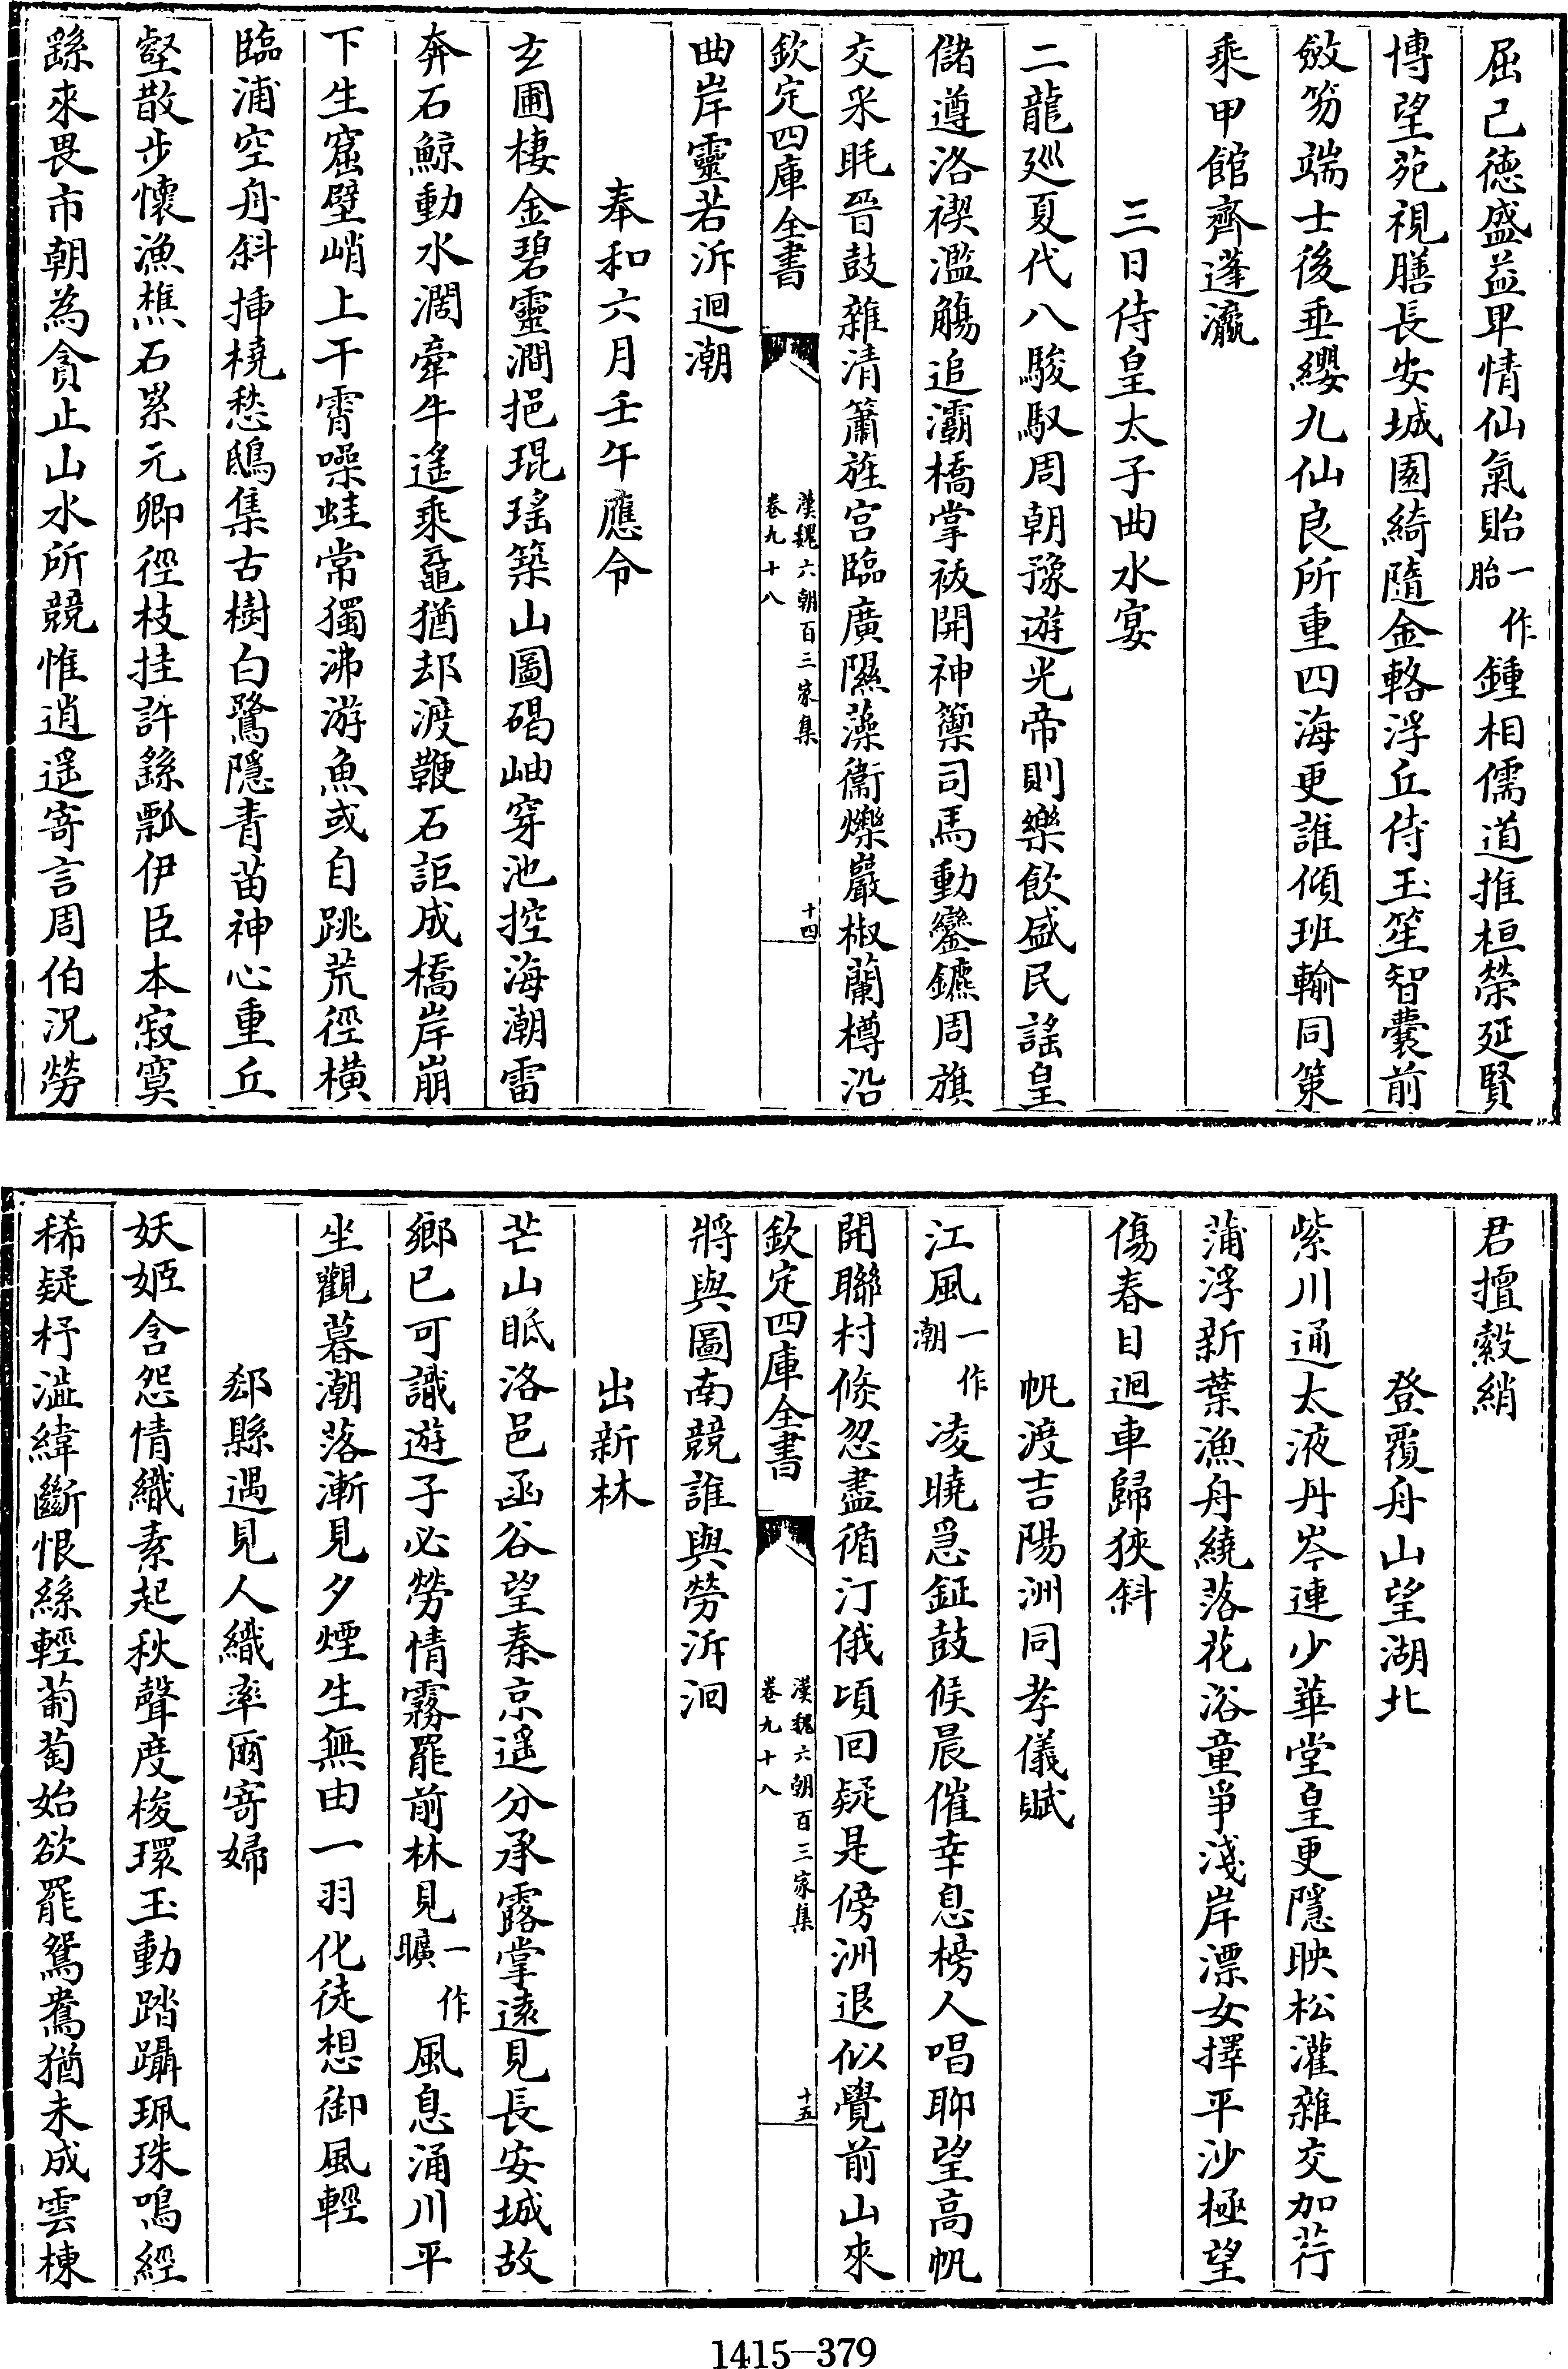 屈己德盛益卑情仙氣貽一作胎鍾相儒道推桓榮延賢
博望苑視膳長安城園綺隨金輅浮丘侍玉笙智囊前
斂笏端士後垂纓九仙良所重四海更誰傾班輸同策
乘甲館齊蓬瀛
三日侍皇太子曲水宴
二龍巡夏代八駿馭周朝豫遊光帝則樂飲盛民謠皇
儲遵洛禊濫觴追灞橋掌祓開神籞司馬動鑾鑣周旗
交采眊晉鼓雜清簫旌宫臨廣隰藻衞爍巖椒蘭樽沿
欽定四庫全書
漢魏六朝百三家集
卷九十八
十四
曲岸靈若泝迴潮
奉和六月壬午應令
玄圃棲金碧靈澗挹琨瑤築山圖碣岫穿池控海潮雷
奔石鯨動水濶牽牛遙乘黿猶却渡鞭石詎成橋岸崩
下生窟壁峭上干霄噪蛙常獨沸游魚或自跳荒徑横
臨浦空舟斜插橈愁鴟集古樹白鷺隱青苗神心重丘
壑散步懷漁樵石累元卿徑枝挂許繇瓢伊臣本寂寞
繇來畏市朝為貪止山水所競惟逍遥寄言周伯況勞
君擅縠綃
登覆舟山望湖北
紫川通太液丹岑連少華堂皇更隱映松灌雜交加荇
蒲浮新葉漁舟繞落花浴童爭淺岸漂女擇平沙極望
傷春目迴車歸狹斜
帆渡吉陽洲同孝儀賦
江風一作潮凌曉急鉦鼓候晨催幸息榜人唱聊望高帆
開聯村倐忽盡循汀俄頃回疑是傍洲退似覺前山來
欽定四庫全書
漢魏六朝百三家集
卷九十八
十五
將與圖南競誰與勞泝洄
出新林
芒山眂洛邑函谷望秦京遥分承露掌遠見長安城故
鄉已可識遊子必勞情霧罷前林見一作曠風息涌川平
坐觀暮潮落漸見夕煙生無由一羽化徒想御風輕
郄縣遇見人織率爾寄婦
妖姬含怨情織素起秋聲度梭環玉動踏躡珮珠鳴經
稀疑杼澁緯斷恨絲輕葡萄始欲罷鴛鴦猶未成雲棟
1415-379